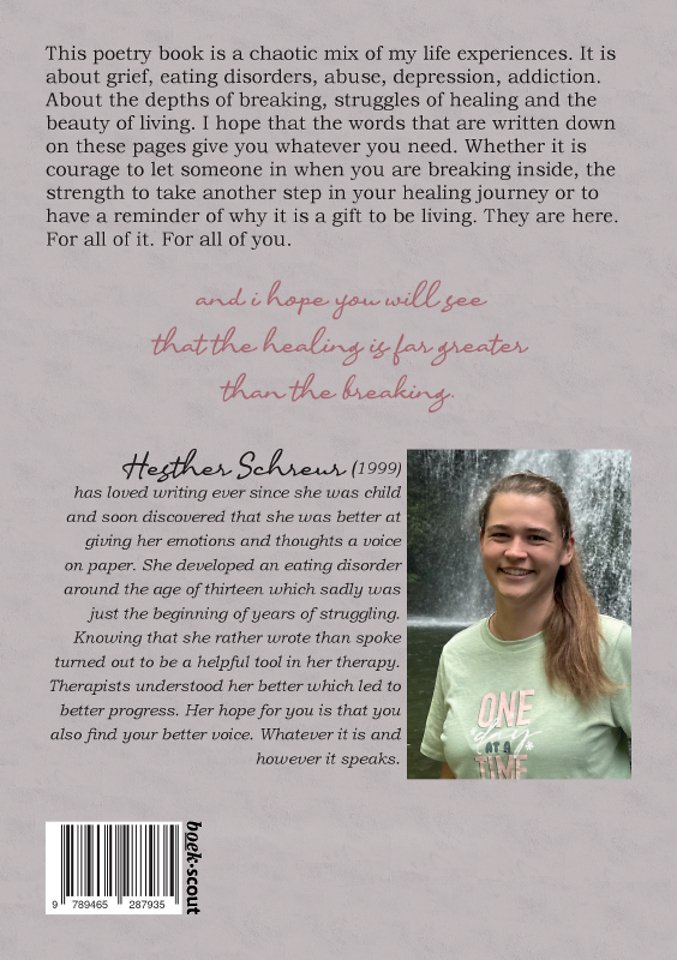 This poetry book is a chaotic mix of my life experiences. It is
about grief, eating disorders, abuse, depression, addiction.
About the depths of breaking, struggles of healing and the
beauty of living. I hope that the words that are written down
on these pages give you whatever you need. Whether it is
courage to let someone in when you are breaking inside, the
strength to take another step in your healing journey or to
have a reminder of why it is a gift to be living. They are here.
For all of it. For all of you.
and i hope you will see
that the healing is far greater
than the breaking.
Hesther Schreur (1999)
has loved writing ever since she was child
and soon discovered that she was better at
giving her emotions and thoughts a voice
on paper. She developed an eating disorder
around the age of thirteen which sadly was
just the beginning of years of struggling.
Knowing that she rather wrote than spoke
turned out to be a helpful tool in her therapy.
Therapists understood her better which led to
better progress. Her hope for you is that you
also find your better voice. Whatever it is and
however it speaks.
ONE
day
AT A
TIME
boek·scout
9 789465 287935